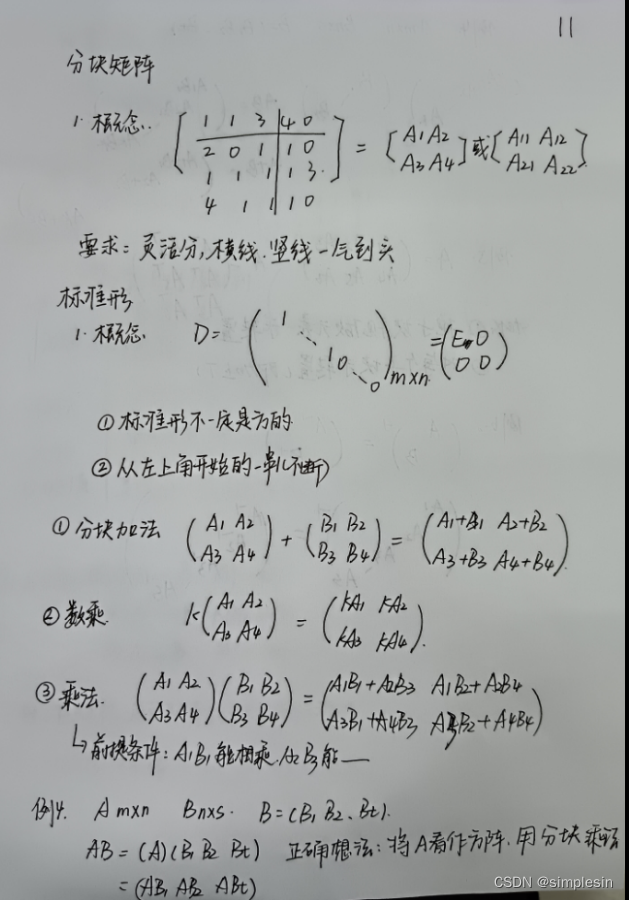 11
分块矩阵
1. 概念.
[ 1 1 3 | 4 0
2 0 1 | 1 0
1 1 1 | 1 3
4 1 1 | 1 0 ] = [ A1 A2
A3 A4 ] 或 [ A11 A12
A21 A22 ]
要求: 灵活分, 横线. 竖线一气到头
标准形
1. 概念. D = ( 1 ⋱ 1 0 ⋱ 0 ) m×n = ( E O
O O )
① 标准形不一定是方的.
② 从左上角开始的一串(不断)
① 分块加法 ( A1 A2
A3 A4 ) + ( B1 B2
B3 B4 ) = ( A1+B1 A2+B2
A3+B3 A4+B4 )
② 数乘. k ( A1 A2
A3 A4 ) = ( kA1 kA2
kA3 kA4 ).
③ 乘法. ( A1 A2
A3 A4 ) ( B1 B2
B3 B4 ) = ( A1B1+A2B3 A1B2+A2B4
A3B1+A4B3 A3B2+A4B4 )
↳ 前提条件: A1B1能相乘. A2B3能——
例4. A m×n B n×s. B=(B1 B2、Bt).
AB = (A)(B1 B2 Bt) 正确想法: 将A看作方阵. 用分块乘法
= (AB1 AB2 ABt)
CSDN @simplesin